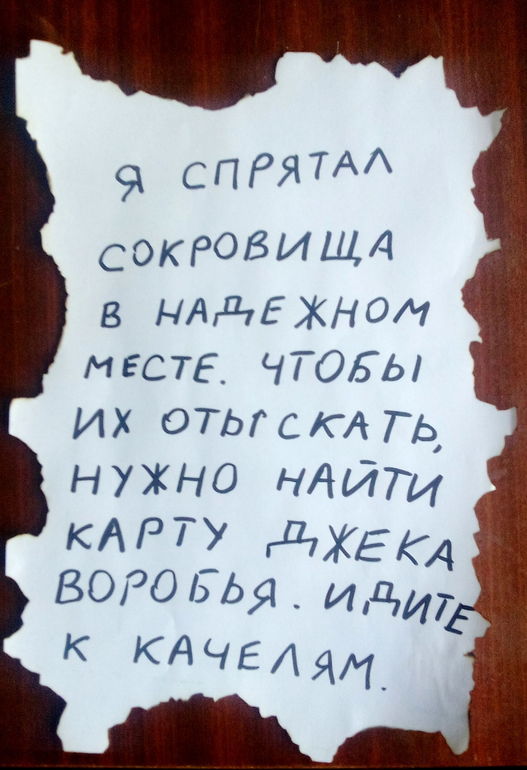 Я СПРЯТАЛ
СОКРОВИЩА
В НАДЕЖНОМ
МЕСТЕ. ЧТОБЫ
ИХ ОТЫСКАТЬ,
НУЖНО НАЙТИ
КАРТУ ДЖЕКА
ВОРОБЬЯ. ИДИТЕ
К КАЧЕЛЯМ.